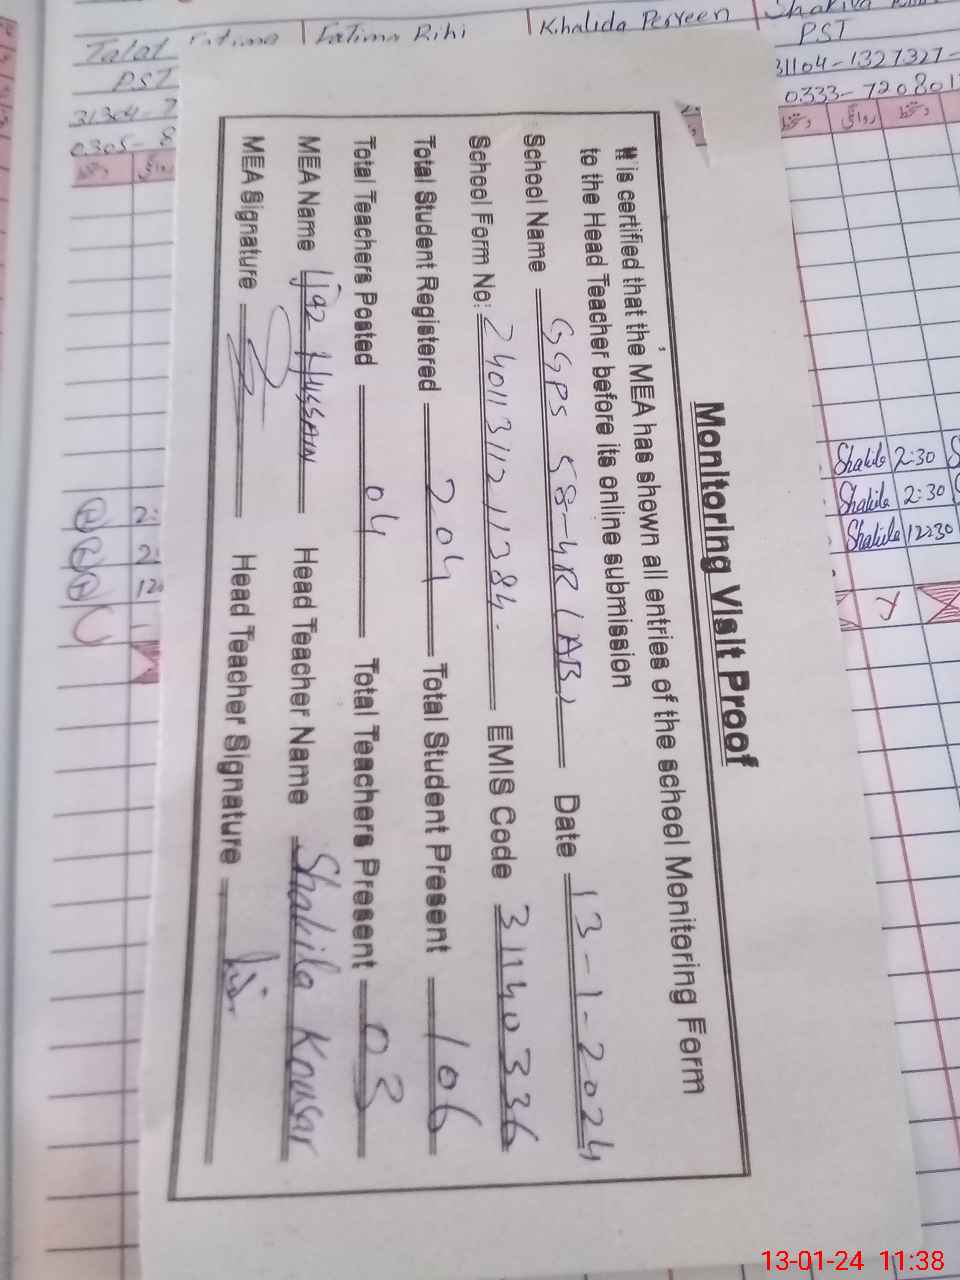 Talat Fatima | Fatima Rihi | Khalida Perveen
PST
PST
31304-7
31104-1327327-
0305-8
0333-720801
دستخط روانگی دستخط
Monitoring Visit Proof
It is certified that the MEA has shown all entries of the school Monitoring Form
to the Head Teacher before its online submission
School Name GGPS 58-4R (AB) Date 13-1-2024
School Form No: 24011311211384. EMIS Code 31140336
Total Student Registered 204 Total Student Present 106
Total Teachers Posted 04 Total Teachers Present 03
MEA Name Ijaz Hussain Head Teacher Name Shakila Kousar
MEA Signature Head Teacher Signature
Shakila 2:30
Shakila 2:30
Shakila 12:30
13-01-24 11:38